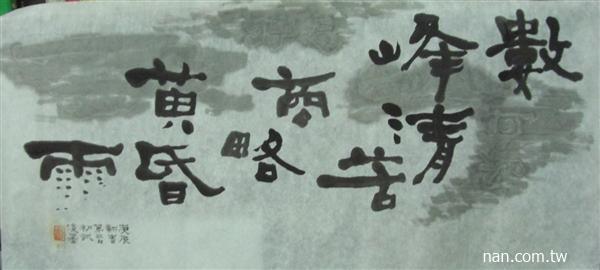 數
峰清
苦
商
略
黃昏
雨
庚辰
nan.com.tw